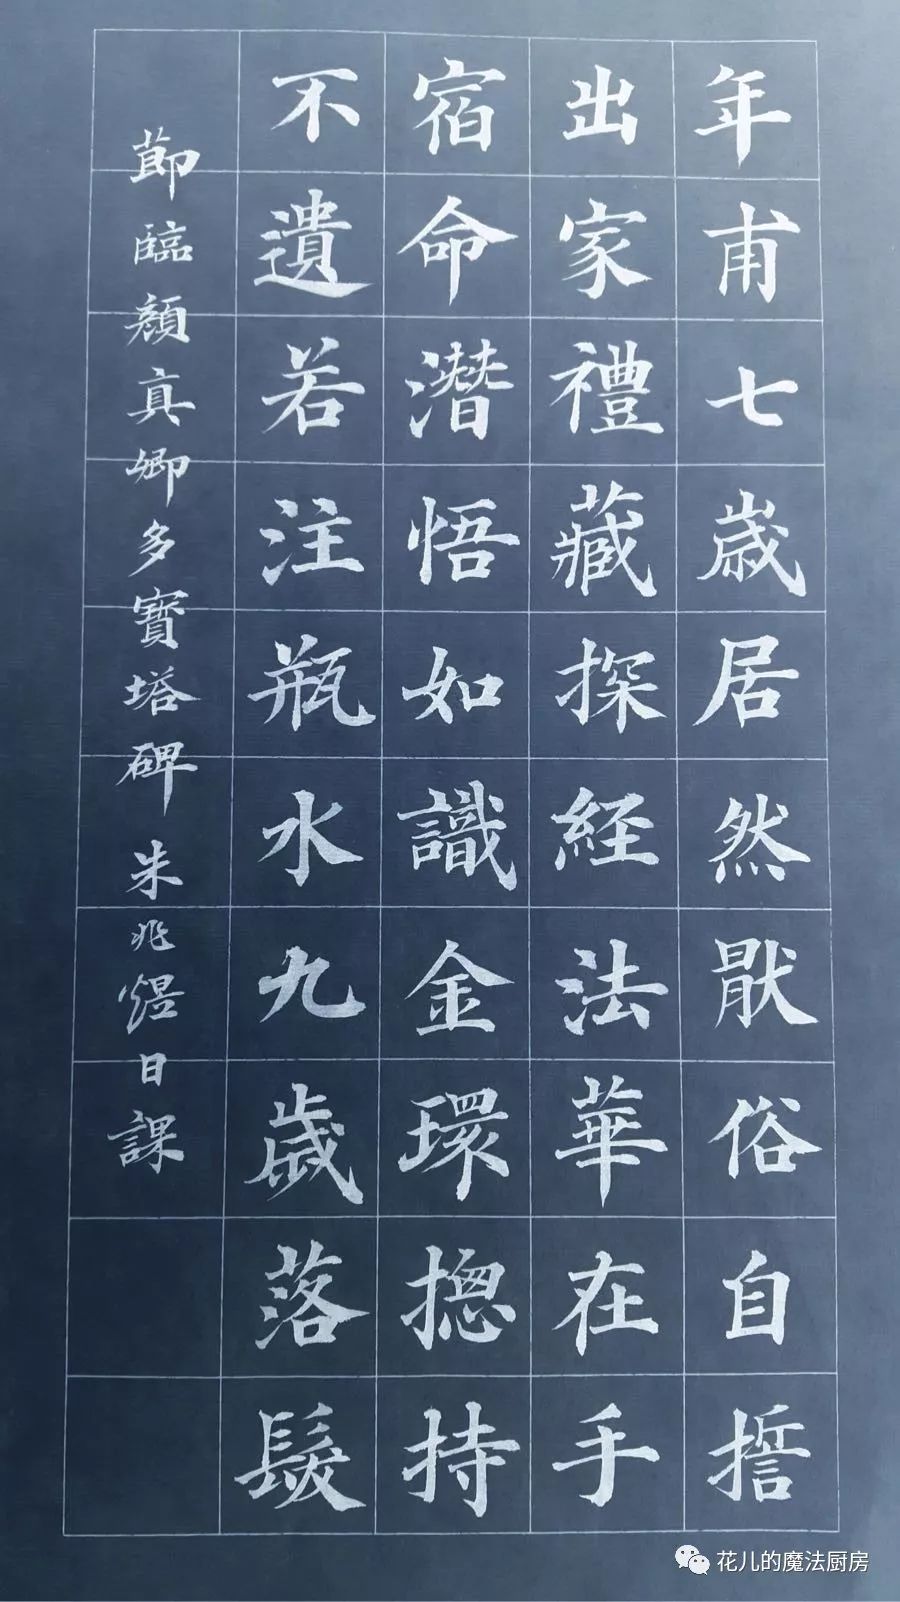 年甫七歳居然猒俗自誓
出家禮藏探経法華在手
宿命潛悟如識金環摠持
不遺若注瓶水九歳落髮
節臨顔真卿多寶塔碑朱兆煜日課
花儿的魔法厨房